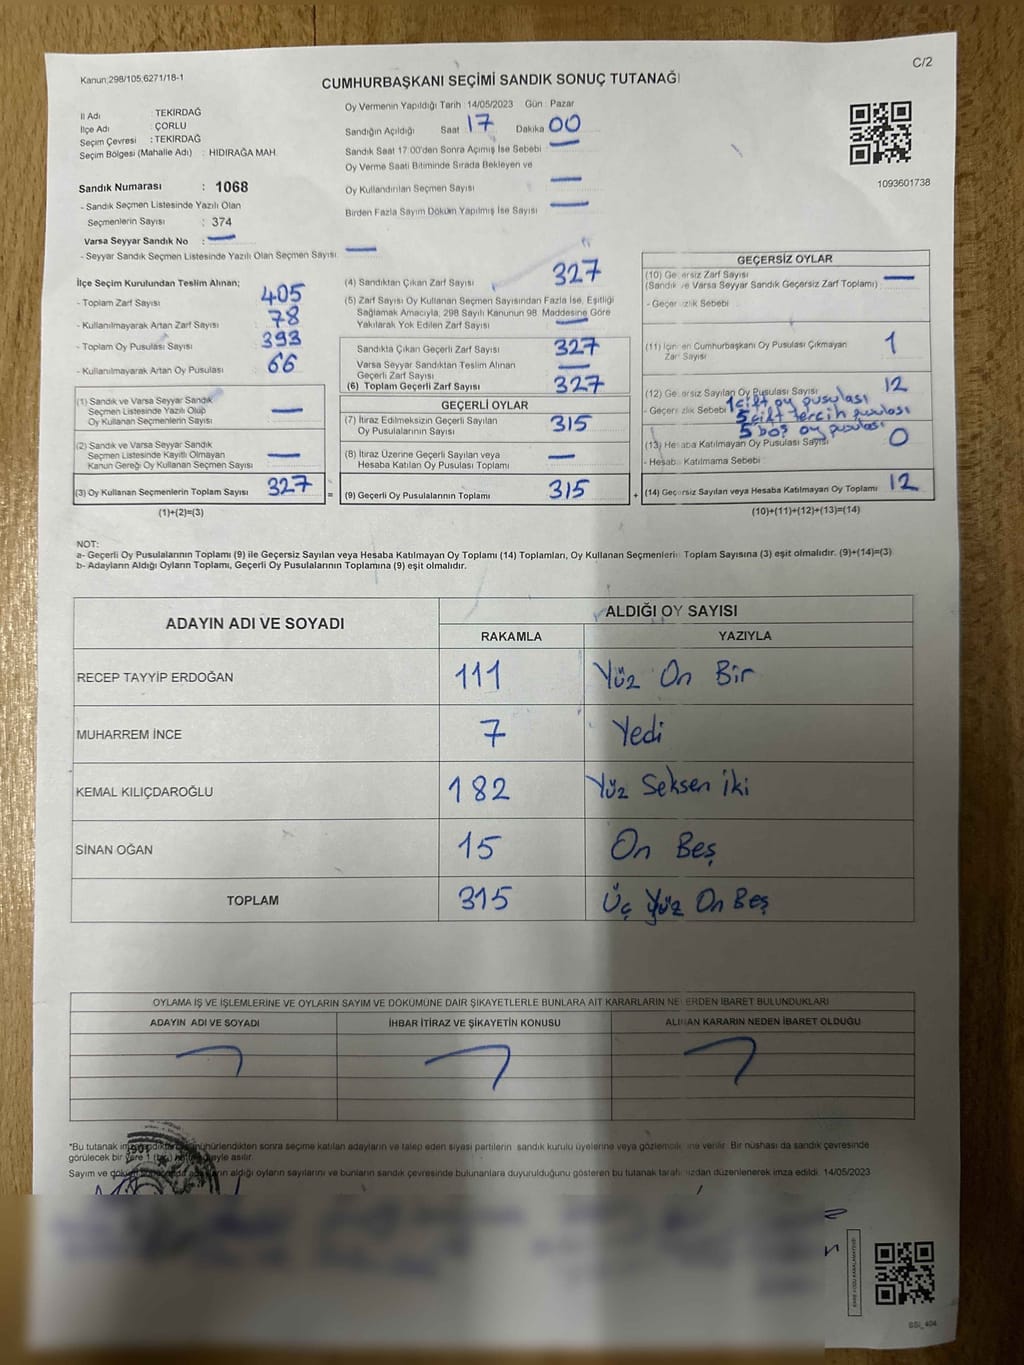 C/2
Kanun 298/105,6271/18-1
CUMHURBAŞKANI SEÇİMİ SANDIK SONUÇ TUTANAĞI
İl Adı : TEKİRDAĞ
İlçe Adı : ÇORLU
Seçim Çevresi : TEKİRDAĞ
Seçim Bölgesi (Mahalle Adı) : HIDIRAĞA MAH.
Sandık Numarası : 1068
- Sandık Seçmen Listesinde Yazılı Olan
Seçmenlerin Sayısı : 374
Varsa Seyyar Sandık No : —
- Seyyar Sandık Seçmen Listesinde Yazılı Olan Seçmen Sayısı —
Oy Vermenin Yapıldığı Tarih : 14/05/2023 Gün : Pazar
Sandığın Açıldığı Saat 17 Dakika 00
Sandık Saat 17:00'den Sonra Açımış İse Sebebi —
Oy Verme Saati Bitiminde Sırada Bekleyen ve
Oy Kullandırılan Seçmen Sayısı —
Birden Fazla Sayım Döküm Yapılmış İse Sayısı —
1093601738
İlçe Seçim Kurulundan Teslim Alınan;
- Toplam Zarf Sayısı 405
- Kullanılmayarak Artan Zarf Sayısı 78
- Toplam Oy Pusulası Sayısı 393
- Kullanılmayarak Artan Oy Pusulası 66
(1) Sandık ve Varsa Seyyar Sandık
Seçmen Listesinde Yazılı Olup
Oy Kullanan Seçmenlerin Sayısı —
(2) Sandık ve Varsa Seyyar Sandık
Seçmen Listesinde Kayıtlı Olmayan
Kanun Gereği Oy Kullanan Seçmen Sayısı —
(3) Oy Kullanan Seçmenlerin Toplam Sayısı 327 =
(1)+(2)=(3)
(4) Sandıktan Çıkan Zarf Sayısı 327
(5) Zarf Sayısı Oy Kullanan Seçmen Sayısından Fazla İse, Eşitliği
Sağlamak Amacıyla, 298 Sayılı Kanunun 98. Maddesine Göre
Yakılarak Yok Edilen Zarf Sayısı —
Sandıkta Çıkan Geçerli Zarf Sayısı 327
Varsa Seyyar Sandıktan Teslim Alınan
Geçerli Zarf Sayısı —
(6) Toplam Geçerli Zarf Sayısı 327
GEÇERLİ OYLAR
(7) İtiraz Edilmeksizin Geçerli Sayılan
Oy Pusulalarının Sayısı 315
(8) İtiraz Üzerine Geçerli Sayılan veya
Hesaba Katılan Oy Pusulası Toplamı —
(9) Geçerli Oy Pusulalarının Toplamı 315 +
GEÇERSİZ OYLAR
(10) Geçersiz Zarf Sayısı
(Sandık ve Varsa Seyyar Sandık Geçersiz Zarf Toplamı) —
- Geçersizlik Sebebi
(11) İçinden Cumhurbaşkanı Oy Pusulası Çıkmayan
Zarf Sayısı 1
(12) Geçersiz Sayılan Oy Pusulası Sayısı 12
- Geçersizlik Sebebi 1 çift oy pusulası
5 çift tercih pusulası
5 boş oy pusulası
(13) Hesaba Katılmayan Oy Pusulası Sayısı 0
- Hesaba Katılmama Sebebi
(14) Geçersiz Sayılan veya Hesaba Katılmayan Oy Toplamı 12
(10)+(11)+(12)+(13)=(14)
NOT:
a- Geçerli Oy Pusulalarının Toplamı (9) ile Geçersiz Sayılan veya Hesaba Katılmayan Oy Toplamı (14) Toplamları, Oy Kullanan Seçmenlerin Toplam Sayısına (3) eşit olmalıdır. (9)+(14)=(3)
b- Adayların Aldığı Oyların Toplamı, Geçerli Oy Pusulalarının Toplamına (9) eşit olmalıdır.
ADAYIN ADI VE SOYADI ALDIĞI OY SAYISI
RAKAMLA YAZIYLA
RECEP TAYYİP ERDOĞAN 111 Yüz On Bir
MUHARREM İNCE 7 Yedi
KEMAL KILIÇDAROĞLU 182 Yüz Seksen iki
SİNAN OĞAN 15 On Beş
TOPLAM 315 Üç Yüz On Beş
OYLAMA İŞ VE İŞLEMLERİNE VE OYLARIN SAYIM VE DÖKÜMÜNE DAİR ŞİKAYETLERLE BUNLARA AİT KARARLARIN NELERDEN İBARET BULUNDUKLARI
ADAYIN ADI VE SOYADI İHBAR İTİRAZ VE ŞİKAYETİN KONUSU ALINAN KARARIN NEDEN İBARET OLDUĞU
*Bu tutanak sonra seçime katılan adayların ve talep eden siyasi partilerin sandık kurulu üyelerine veya gözlemcilerine verilir. Bir nüshası da sandık çevresinde
görülecek bir yere asılır.
Sayım ve aldığı oyların sayılarını ve bunların sandık çevresinde bulunanlara duyurulduğunu gösteren bu tutanak tarafımızdan düzenlenerek imza edildi. 14/05/2023
SSİ_404